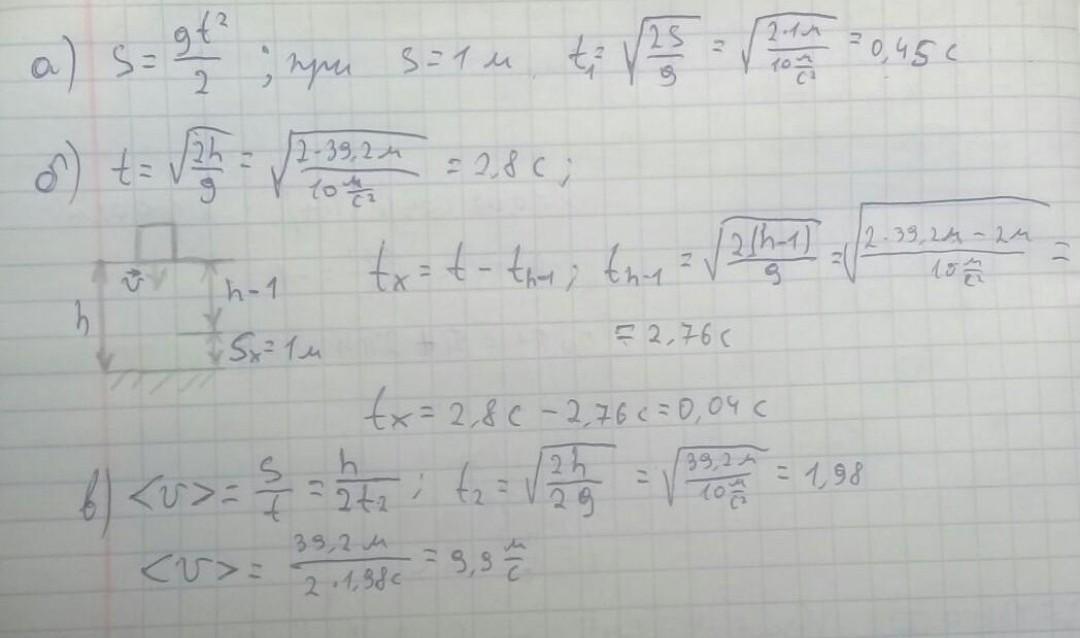 а) S = gt²/2 ; при S = 1 м t₁ = √(2S/g) = √(2·1м/10 м/с²) = 0,45 с
б) t = √(2h/g) = √(2·39,2м/10 м/с²) = 2,8 с ;
tₓ = t − tₕ₋₁ ; tₕ₋₁ = √(2(h−1)/g) = √(2·39,2м − 2м/10 м/с²) =
v⃗
h−1
h
= 2,76 с
Sₓ = 1м
tₓ = 2,8 с − 2,76 с = 0,04 с
в) <v> = S/t = h/2t₂ ; t₂ = √(2h/2g) = √(39,2м/10 м/с²) = 1,98
<v> = 39,2 м/2·1,98с = 9,9 м/с